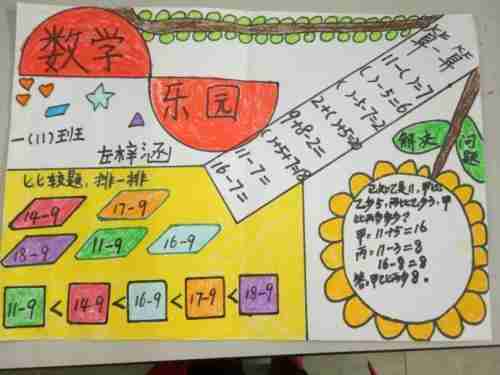 数学
乐园
一(11)班
左梓涵
算一算
11-( )=7
( )-5=6
( )-5-7=2
9+8-2=
11-7=
16-7=
比比较题,排一排
14-9 17-9
18-9 11-9 16-9
11-9 < 14-9 < 16-9 < 17-9 < 18-9
解决 问题
已知乙是11,甲比
乙多5,丙比乙少3,甲
比丙多多少?
甲:11+5=16
丙:11-3=8
16-8=8
答:甲比丙多8。